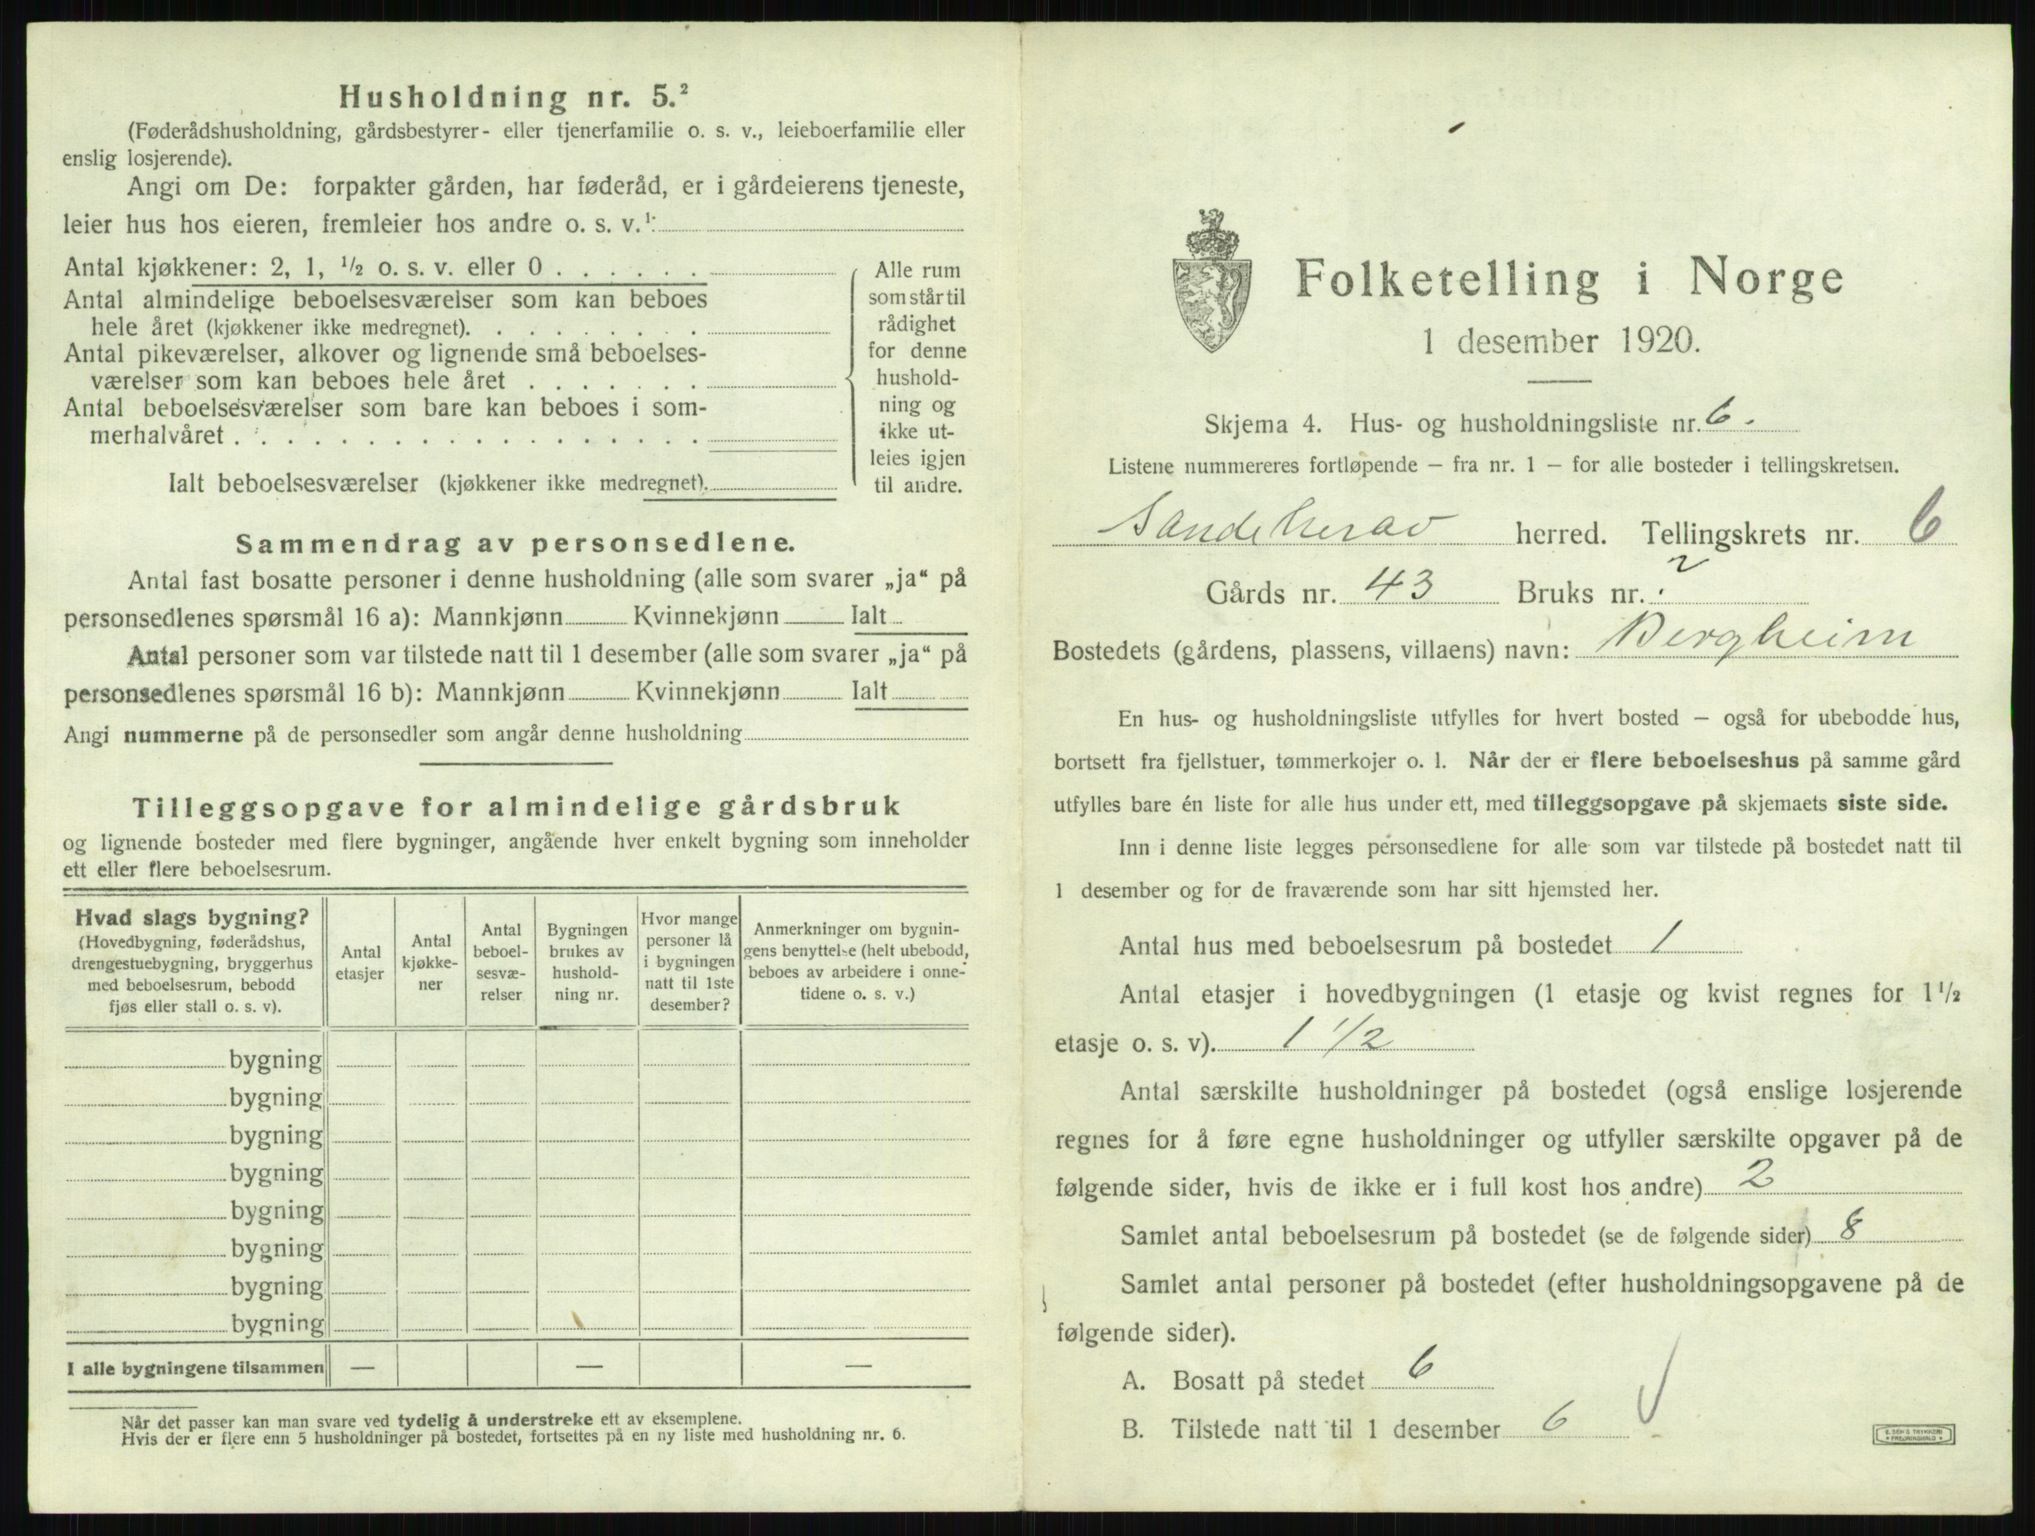 Husholdning nr. 5.²
(Føderådshusholdning, gårdsbestyrer- eller tjenerfamilie o. s. v., leieboerfamilie eller
enslig losjerende).
Angi om De: forpakter gården, har føderåd, er i gårdeierens tjeneste,
leier hus hos eieren, fremleier hos andre o. s. v.¹
Antal kjøkkener: 2, 1, ½ o. s. v. eller 0 . . . . . .
Antal almindelige beboelsesværelser som kan beboes
hele året (kjøkkener ikke medregnet). . . . . . . . .
Antal pikeværelser, alkover og lignende små beboelses-
værelser som kan beboes hele året . . . . . . .
Antal beboelsesværelser som bare kan beboes i som-
merhalvåret . . . . . . . . . . . . . . . . . .
Ialt beboelsesværelser (kjøkkener ikke medregnet).
Alle rum
som står til
rådighet
for denne
hushold-
ning og
ikke ut-
leies igjen
til andre.
Sammendrag av personsedlene.
Antal fast bosatte personer i denne husholdning (alle som svarer „ja“ på
personsedlenes spørsmål 16 a): Mannkjønn Kvinnekjønn Ialt
Antal personer som var tilstede natt til 1 desember (alle som svarer „ja“ på
personsedlenes spørsmål 16 b): Mannkjønn Kvinnekjønn Ialt
Angi nummerne på de personsedler som angår denne husholdning
Tilleggsopgave for almindelige gårdsbruk
og lignende bosteder med flere bygninger, angående hver enkelt bygning som inneholder
ett eller flere beboelsesrum.
Hvad slags bygning?
(Hovedbygning, føderådshus,
drengestuebygning, bryggerhus
med beboelsesrum, bebodd
fjøs eller stall o. s. v).
Antal
etasjer
Antal
kjøkke-
ner
Antal
beboel-
sesvæ-
relser
Bygningen
brukes av
hushold-
ning nr.
Hvor mange
personer lå
i bygningen
natt til 1ste
desember?
Anmerkninger om bygnin-
gens benyttelse (helt ubebodd,
beboes av arbeidere i onne-
tidene o. s. v.)
bygning
bygning
bygning
bygning
bygning
bygning
bygning
bygning
I alle bygningene tilsammen — — —
Når det passer kan man svare ved tydelig å understreke ett av eksemplene.
Hvis der er flere enn 5 husholdninger på bostedet, fortsettes på en ny liste med husholdning nr. 6.
Folketelling i Norge
1 desember 1920.
Skjema 4. Hus- og husholdningsliste nr. 6.
Listene nummereres fortløpende — fra nr. 1 — for alle bosteder i tellingskretsen.
Sandeherad herred. Tellingskrets nr. 6
Gårds nr. 43 Bruks nr. 2
Bostedets (gårdens, plassens, villaens) navn: Bergheim
En hus- og husholdningsliste utfylles for hvert bosted — også for ubebodde hus,
bortsett fra fjellstuer, tømmerkojer o. l. Når der er flere beboelseshus på samme gård
utfylles bare én liste for alle hus under ett, med tilleggsopgave på skjemaets siste side.
Inn i denne liste legges personsedlene for alle som var tilstede på bostedet natt til
1 desember og for de fraværende som har sitt hjemsted her.
Antal hus med beboelsesrum på bostedet 1
Antal etasjer i hovedbygningen (1 etasje og kvist regnes for 1½
etasje o. s. v). 1 1/2
Antal særskilte husholdninger på bostedet (også enslige losjerende
regnes for å føre egne husholdninger og utfyller særskilte opgaver på de
følgende sider, hvis de ikke er i full kost hos andre) 2
Samlet antal beboelsesrum på bostedet (se de følgende sider) 8
Samlet antal personer på bostedet (efter husholdningsopgavene på de
følgende sider).
A. Bosatt på stedet 6
B. Tilstede natt til 1 desember 6